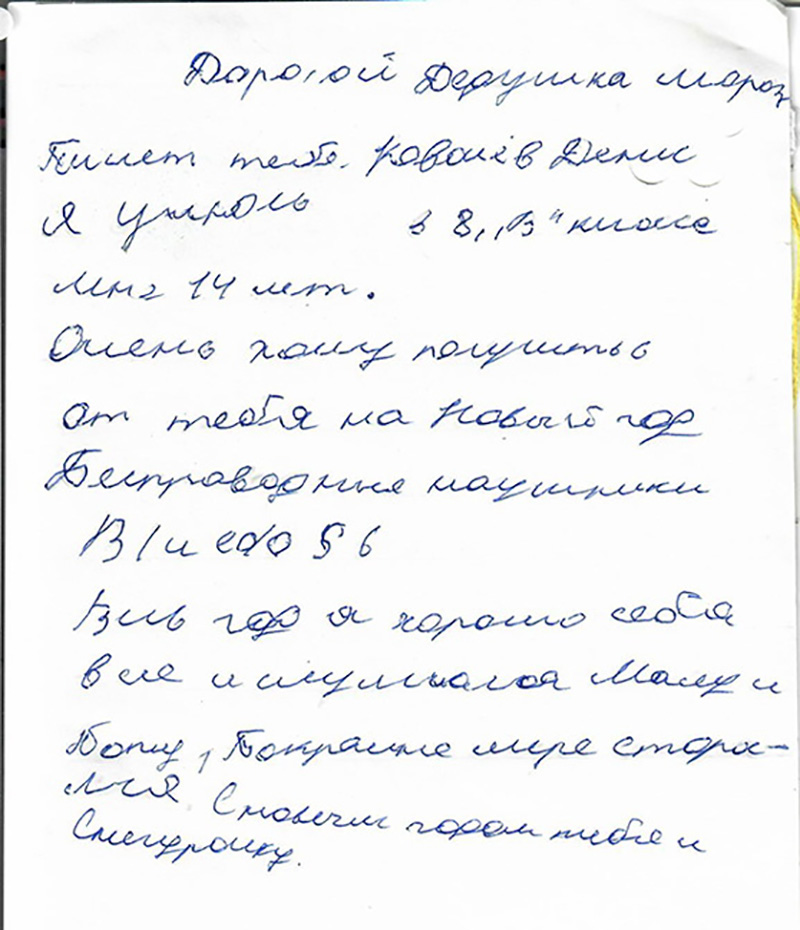 Дорогой Дедушка мороз
Пишет тебе. Ковалёв Денис
я учусь в 8 „В" классе
мне 14 лет.
Очень хочу получить
от тебя на Новый год
Беспроводные наушники
Весь год я хорошо себя
вёл и слушался Маму и
Папу, Покрайне мере стара-
лся. С новым годом тебя и
Снегурочку.